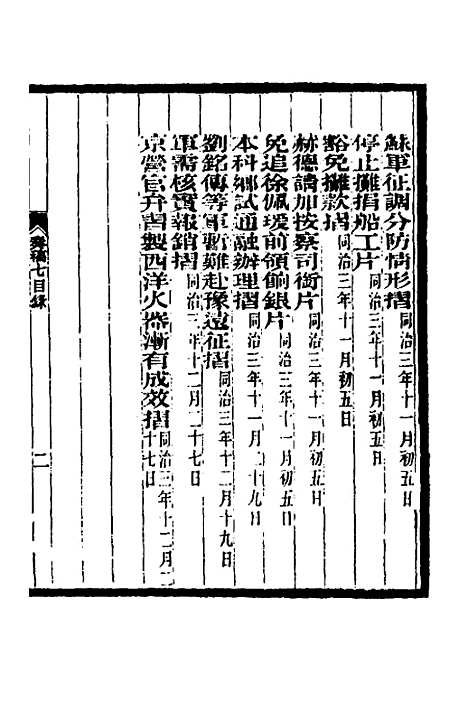 蘇軍征調分防情形摺同治三年十一月初五日
停止攤捐船工片同治三年十一月初五日
豁免攤款摺同治三年十一月初五日
赫德請加按察司銜片同治三年十一月初五日
免追徐佩瑗前領餉銀片同治三年十一月初五日
本科鄉試通融辦理摺同治三年十一月二十九日
劉銘傳等軍暫難赴豫遠征摺同治三年十二月十九日
軍需核實報銷摺同治三年十二月二十七日
京營官弁習製西洋火器漸有成效摺同治三年十二月二十七日
奏稿七目錄
二